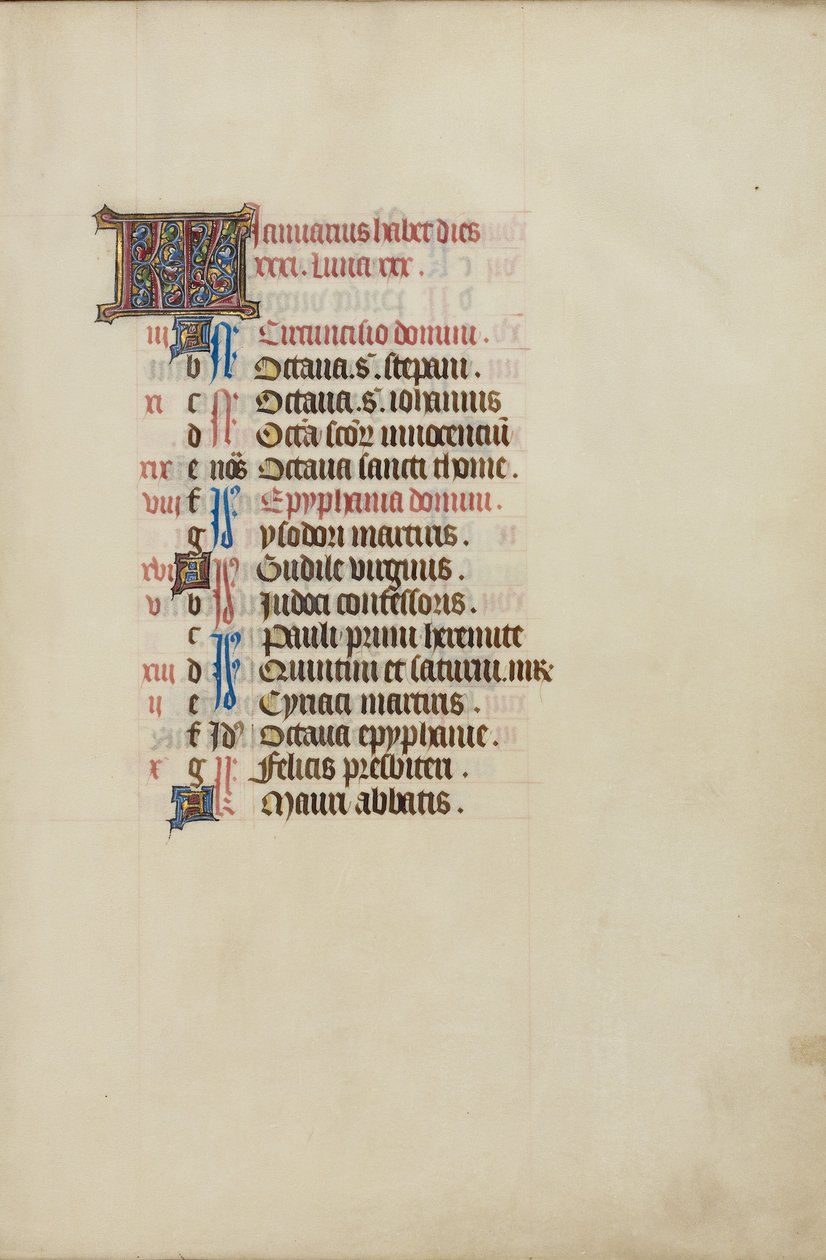 KL Januarius habet dies
xxxi. Luna xxx.
iii A N: Circuncisio domini.
b Octaua .s. stepani.
xi c N: Octaua .s. iohannis
d Octa scoꝝ innocenciū
xix e nōs Octaua sancti thome.
viii f Epyphania domini.
g ysodori martiris.
xvi A Gudile virginis.
v b Judoci confessoris.
c Pauli primi heremite
xiii d Quintini et saturni. mr
ii e Cyriaci martiris.
f Jd' Octaua epyphanie.
x g Felicis presbiteri.
A Mauri abbatis.